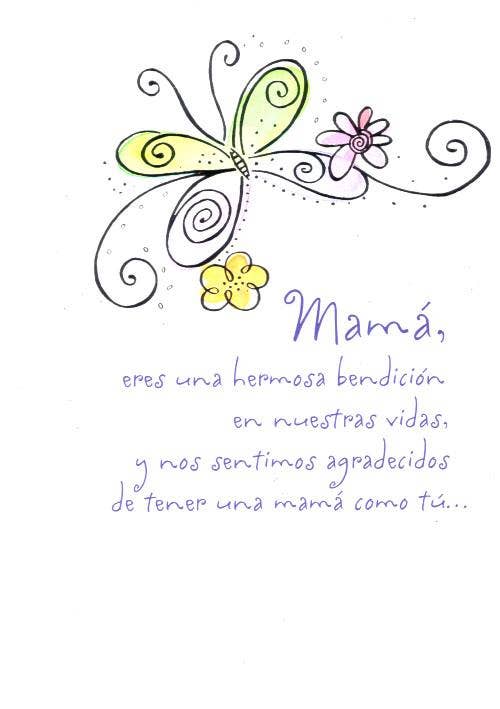 Mamá,
eres una hermosa bendición
en nuestras vidas,
y nos sentimos agradecidos
de tener una mamá como tú...